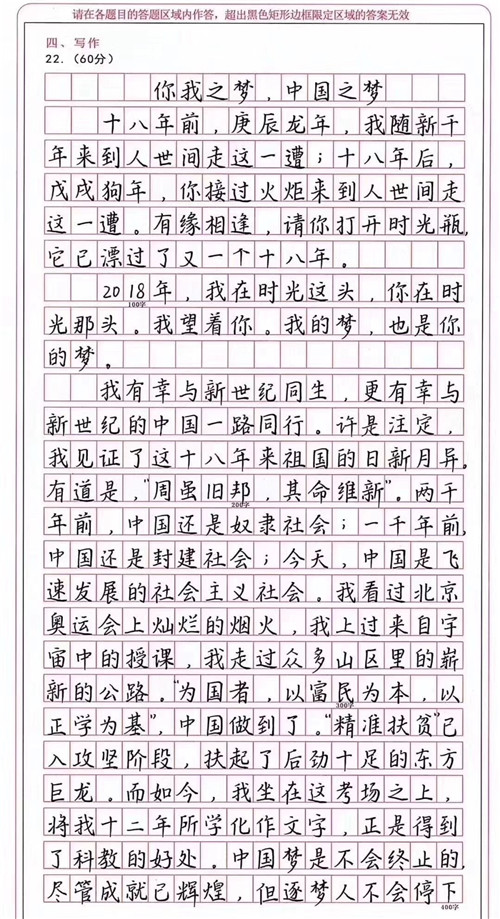 请在各题目的答题区域内作答，超出黑色矩形边框限定区域的答案无效
四、写作
22．（60分）
你我之梦，中国之梦
十八年前，庚辰龙年，我随新千
年来到人世间走这一遭；十八年后，
戊戌狗年，你接过火炬来到人世间走
这一遭。有缘相逢，请你打开时光瓶，
它已漂过了又一个十八年。
2018年，我在时光这头，你在时
100字
光那头。我望着你。我的梦，也是你
的梦。
我有幸与新世纪同生，更有幸与
新世纪的中国一路同行。许是注定，
我见证了这十八年来祖国的日新月异。
有道是，“周虽旧邦，其命维新”。两千
200字
年前，中国还是奴隶社会；一千年前，
中国还是封建社会；今天，中国是飞
速发展的社会主义社会。我看过北京
奥运会上灿烂的烟火，我上过来自宇
宙中的授课，我走过众多山区里的崭
新的公路。“为国者，以富民为本，以
300字
正学为基”，中国做到了。“精准扶贫”已
入攻坚阶段，扶起了后劲十足的东方
巨龙。而如今，我坐在这考场之上，
将我十二年所学化作文字，正是得到
了科教的好处。中国梦是不会终止的，
尽管成就已辉煌，但逐梦人不会停下
400字